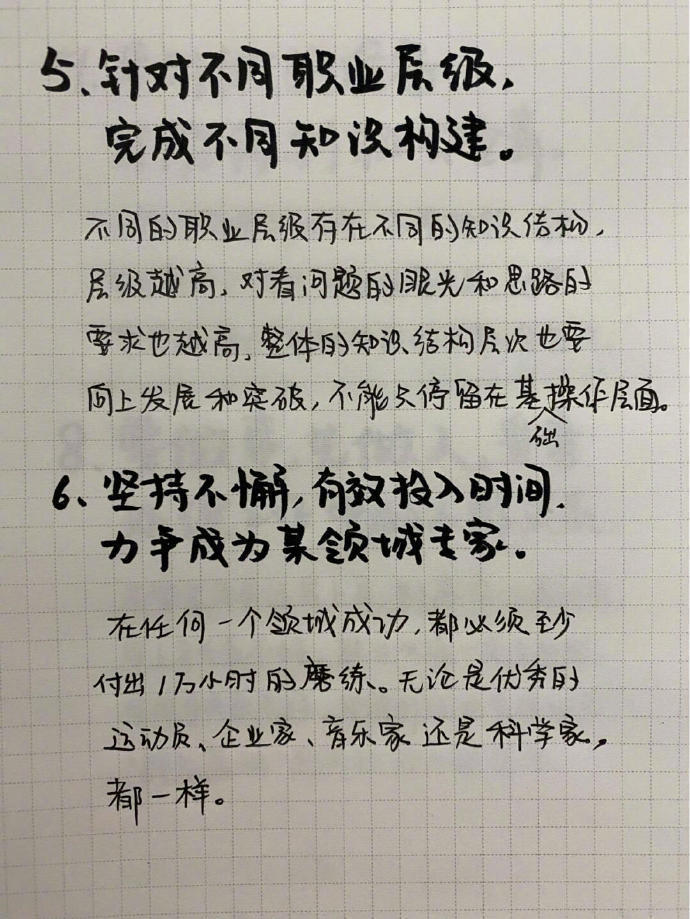 5、针对不同职业层级，
完成不同知识构建。
不同的职业层级存在不同的知识结构，
层级越高，对看问题的眼光和思路的
要求也越高，整体的知识结构层次也要
向上发展和突破，不能只停留在基础操作层面。
6、坚持不懈，有效投入时间，
力争成为某领域专家。
在任何一个领域成功，都必须至少
付出1万小时的磨练。无论是优秀的
运动员、企业家、音乐家还是科学家，
都一样。